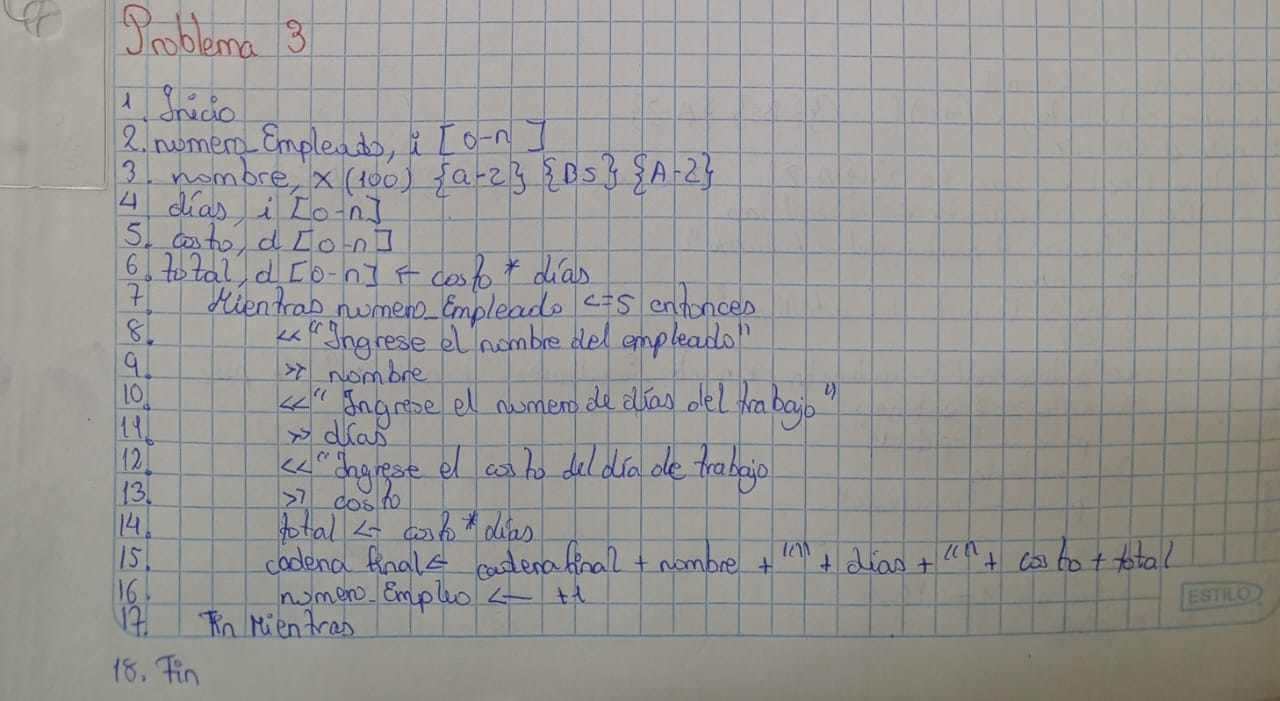 Problema 3
1. Inicio
2. numero_Empleado, i [0-n]
3. nombre, x (100) {a-z} {BS} {A-Z}
4 días, i [0-n]
5. costo, d [0-n]
6. total, d [0-n] ← costo * días
7. Mientras numero_Empleado <=5 entonces
8. << "Ingrese el nombre del empleado"
9. >> nombre
10. << " Ingrese el numero de días del trabajo"
11. >> días
12. << "Ingrese el costo del día de trabajo
13. >> costo
14. total ← costo * días
15. cadena final ← cadena final + nombre + "" + días + "" + costo + total
16. numero_Empleo ← +1
17. Fin Mientras
ESTILO
18. Fin